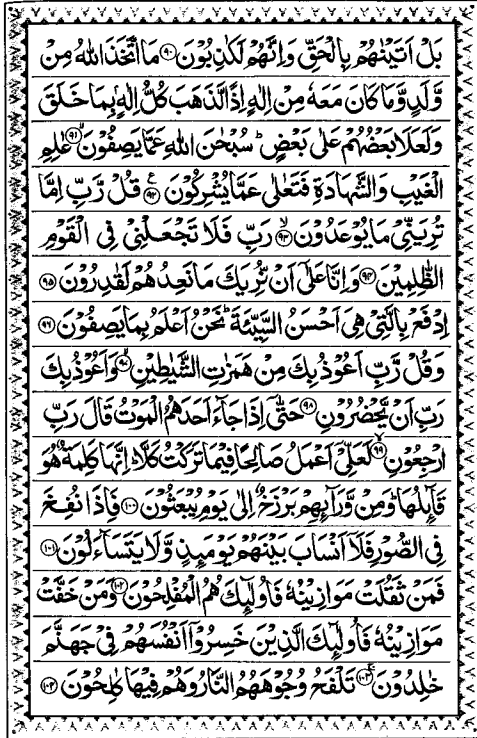 بَلْ اَتَيْنٰهُمْ بِالْحَقِّ وَاِنَّهُمْ لَكٰذِبُوْنَ ﴿۹۰﴾ مَا اتَّخَذَ اللّٰهُ مِنْ
وَّلَدٍ وَّمَا كَانَ مَعَهٗ مِنْ اِلٰهٍ اِذًا لَّذَهَبَ كُلُّ اِلٰهٍۭ بِمَا خَلَقَ
وَلَعَلَا بَعْضُهُمْ عَلٰى بَعْضٍ ؕ سُبْحٰنَ اللّٰهِ عَمَّا يَصِفُوْنَ ﴿۹۱﴾ عٰلِمِ
الْغَيْبِ وَالشَّهَادَةِ فَتَعٰلٰى عَمَّا يُشْرِكُوْنَ ﴿۹۲﴾ قُلْ رَّبِّ اِمَّا
تُرِيَنِّيْ مَا يُوْعَدُوْنَ ﴿۹۳﴾ رَبِّ فَلَا تَجْعَلْنِيْ فِى الْقَوْمِ
الظّٰلِمِيْنَ ﴿۹۴﴾ وَاِنَّا عَلٰٓى اَنْ نُّرِيَكَ مَا نَعِدُهُمْ لَقٰدِرُوْنَ ﴿۹۵﴾
اِدْفَعْ بِالَّتِيْ هِيَ اَحْسَنُ السَّيِّئَةَ ؕ نَحْنُ اَعْلَمُ بِمَا يَصِفُوْنَ ﴿۹۶﴾
وَقُلْ رَّبِّ اَعُوْذُ بِكَ مِنْ هَمَزٰتِ الشَّيٰطِيْنِ ﴿۹۷﴾ وَاَعُوْذُ بِكَ
رَبِّ اَنْ يَّحْضُرُوْنِ ﴿۹۸﴾ حَتّٰٓى اِذَا جَآءَ اَحَدَهُمُ الْمَوْتُ قَالَ رَبِّ
ارْجِعُوْنِ ﴿۹۹﴾ لَعَلِّيْٓ اَعْمَلُ صَالِحًا فِيْمَا تَرَكْتُ كَلَّا ؕ اِنَّهَا كَلِمَةٌ هُوَ
قَآئِلُهَا ؕ وَمِنْ وَّرَآئِهِمْ بَرْزَخٌ اِلٰى يَوْمِ يُبْعَثُوْنَ ﴿۱۰۰﴾ فَاِذَا نُفِخَ
فِى الصُّوْرِ فَلَآ اَنْسَابَ بَيْنَهُمْ يَوْمَئِذٍ وَّلَا يَتَسَآءَلُوْنَ ﴿۱۰۱﴾
فَمَنْ ثَقُلَتْ مَوَازِيْنُهٗ فَاُولٰٓئِكَ هُمُ الْمُفْلِحُوْنَ ﴿۱۰۲﴾ وَمَنْ خَفَّتْ
مَوَازِيْنُهٗ فَاُولٰٓئِكَ الَّذِيْنَ خَسِرُوْٓا اَنْفُسَهُمْ فِيْ جَهَنَّمَ
خٰلِدُوْنَ ﴿۱۰۳﴾ تَلْفَحُ وُجُوْهَهُمُ النَّارُ وَهُمْ فِيْهَا كٰلِحُوْنَ ﴿۱۰۴﴾